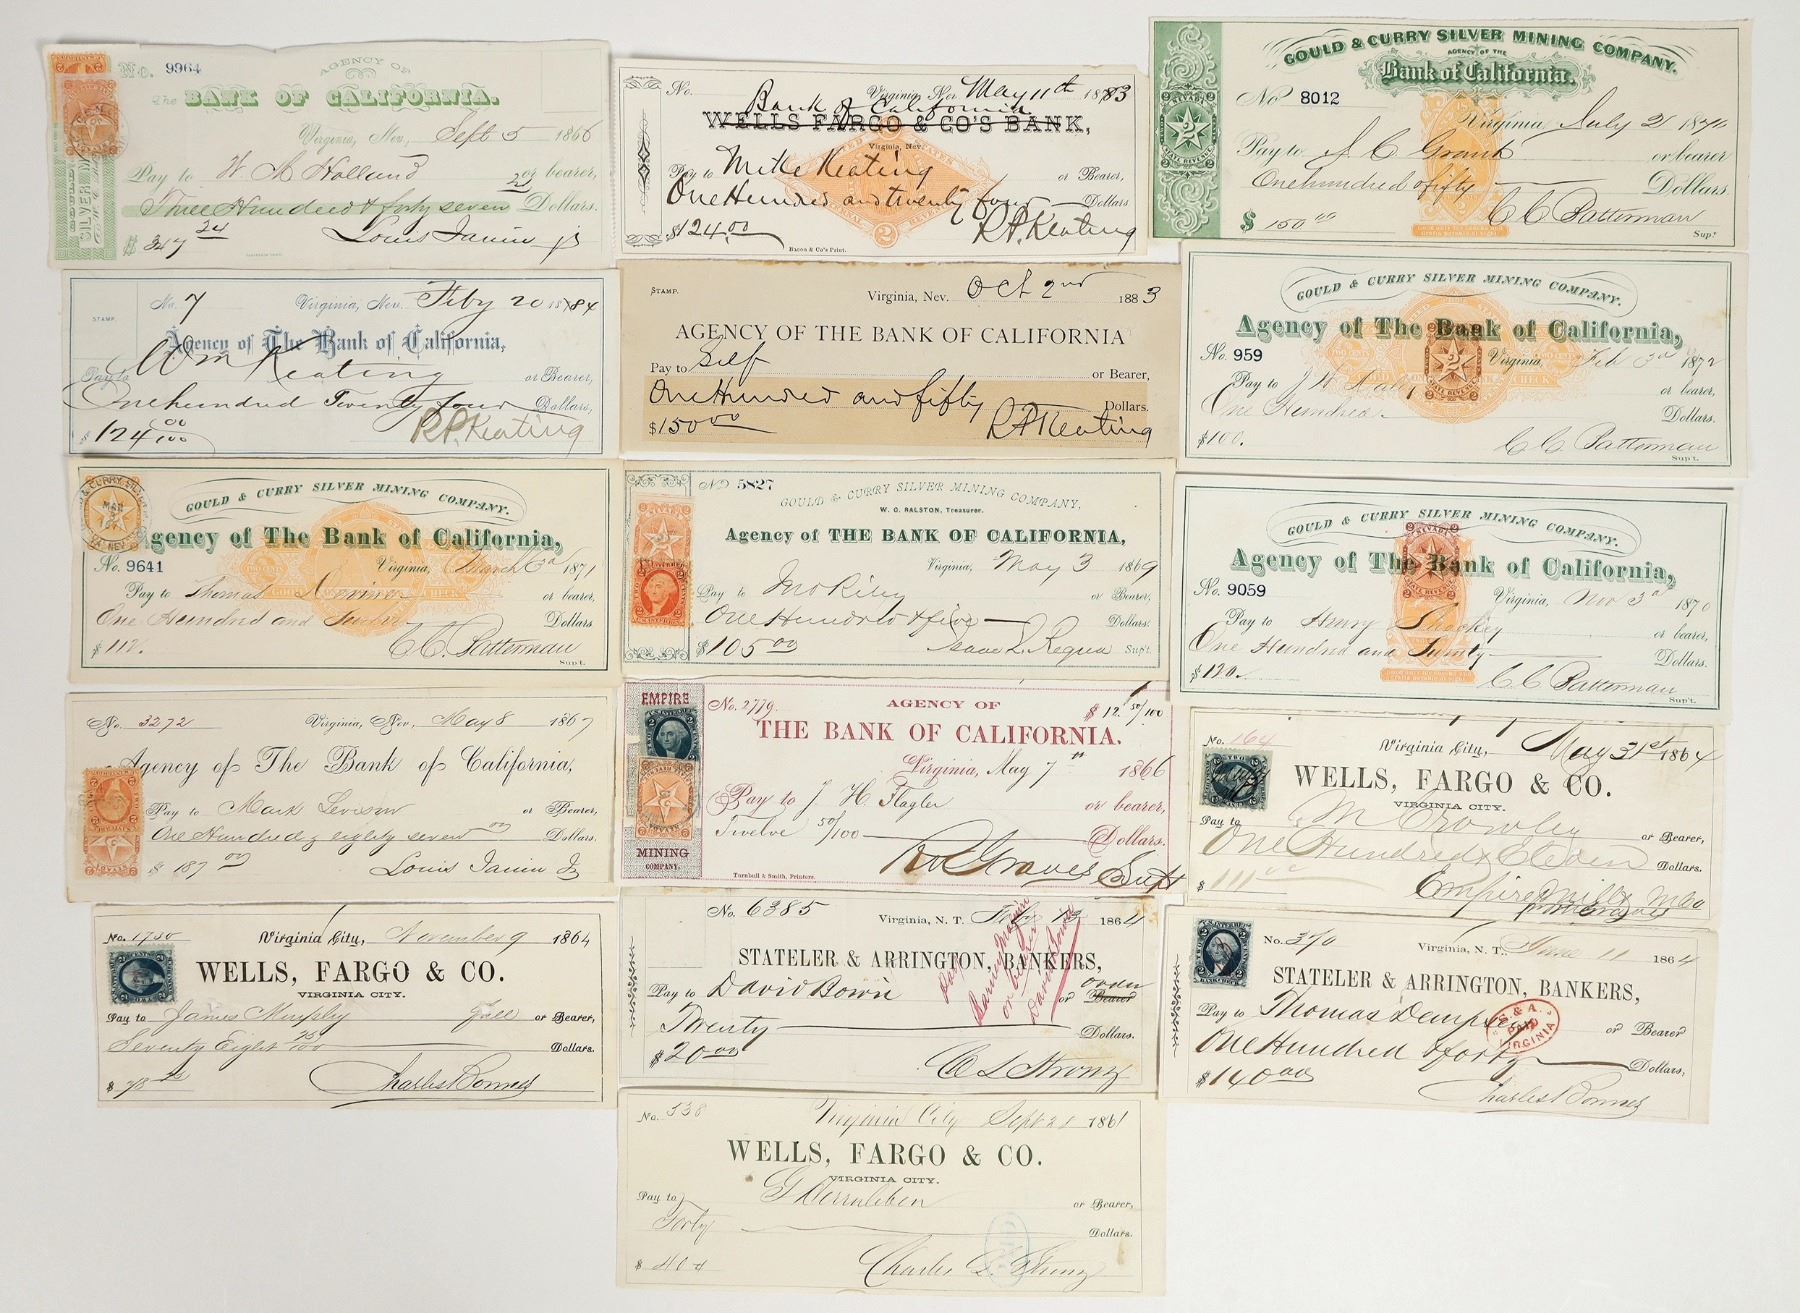 No. 9964
AGENCY OF
The BANK OF CALIFORNIA.
Virginia, Nev., Sept 5 1866
Pay to W. A. Holland or bearer,
Three Hundred & forty seven Dollars.
$ 347 24 Louis Janin Jr
No. Virginia, Nev May 11th 1883
Bank of California
WELLS FARGO & CO'S BANK,
Virginia, Nev.
Pay to Mike Keating or Bearer,
One Hundred and twenty four Dollars
$124.00 R. P. Keating
Bacon & Co's Print.
GOULD & CURRY SILVER MINING COMPANY.
AGENCY OF THE
Bank of California.
No 8012
Virginia, July 2 1870
Pay to J. C. Grant or bearer
One hundred & fifty Dollars
$ 150 00 C C Batterman
Sup't
No. 7 Virginia, Nev. Feby 20 1884
STAMP.
Agency of The Bank of California,
Pay to Wm Keating or Bearer,
One hundred Twenty four Dollars,
$ 124 00/100 R. P. Keating
STAMP.
Virginia, Nev. Oct 2nd 1883
AGENCY OF THE BANK OF CALIFORNIA
Pay to Self or Bearer,
One Hundred and fifty Dollars.
$150 00 R. P. Keating
GOULD & CURRY SILVER MINING COMPANY.
Agency of The Bank of California,
No. 959 Virginia, Feb 3rd 1872
Pay to J. W. or bearer,
One Hundred Dollars.
$100. C C Batterman
Sup't.
GOULD & CURRY SILVER MINING COMPANY.
Agency of The Bank of California,
No. 9641 Virginia, March 3rd 1871
Pay to Thomas or bearer,
One Hundred and Twelve Dollars
$ 112. C C. Batterman
Sup't.
No 5827
GOULD & CURRY SILVER MINING COMPANY,
W. C. RALSTON, Treasurer.
Agency of THE BANK OF CALIFORNIA,
Virginia, May 3 1869
Pay to Jno Riley or Bearer,
One Hundred & five Dollars.
$105 00 Isaac L. Requa Sup't.
GOULD & CURRY SILVER MINING COMPANY.
Agency of The Bank of California,
No. 9059 Virginia, Nov 3rd 1870
Pay to Henry Shockey or bearer,
One Hundred and Twenty Dollars.
$120. C C Batterman
Sup't.
No. 3272 Virginia, Nev. May 8 1867
Agency of The Bank of California,
Pay to Mark Levison or Bearer,
One Hundred & eighty seven 00 Dollars.
$ 187 00 Louis Janin Jr
EMPIRE
MINING
COMPANY.
No. 2779. AGENCY OF $ 12. 50/100
THE BANK OF CALIFORNIA.
Virginia, May 7th 1866
Pay to J. H. Flagler or bearer,
Twelve 50/100 Dollars.
Graves Supt
Turnbull & Smith, Printers.
No. 164 Virginia City, May 31st 1864
WELLS, FARGO & CO.
VIRGINIA CITY.
Pay to M Crowley or Bearer,
One Hundred & Eleven Dollars.
$ 111 00 Empire Mill & M Co
No. 1730 Virginia City, November 9 1864
WELLS, FARGO & CO.
VIRGINIA CITY.
Pay to James Murphy or Bearer,
Seventy Eight 75/100 Dollars.
$ 78 75 Charles Bonner
No. 6385 Virginia, N. T. 13 1864
STATELER & ARRINGTON, BANKERS,
Pay to David Bowin or Bearer order
Twenty Dollars.
$20 00 C L Strong
or bearer
David Bowin
No. 370 Virginia, N. T., June 11 1864
STATELER & ARRINGTON, BANKERS,
Pay to Thomas Dempsey or Bearer
One Hundred & forty Dollars,
$140 00 Charles Bonner
S. & A.
PAID
VIRGINIA
No. 538 Virginia City Sept 21 1861
WELLS, FARGO & CO.
VIRGINIA CITY.
Pay to G or Bearer,
Forty Dollars.
$ 40 Charles L. Strong
PAID